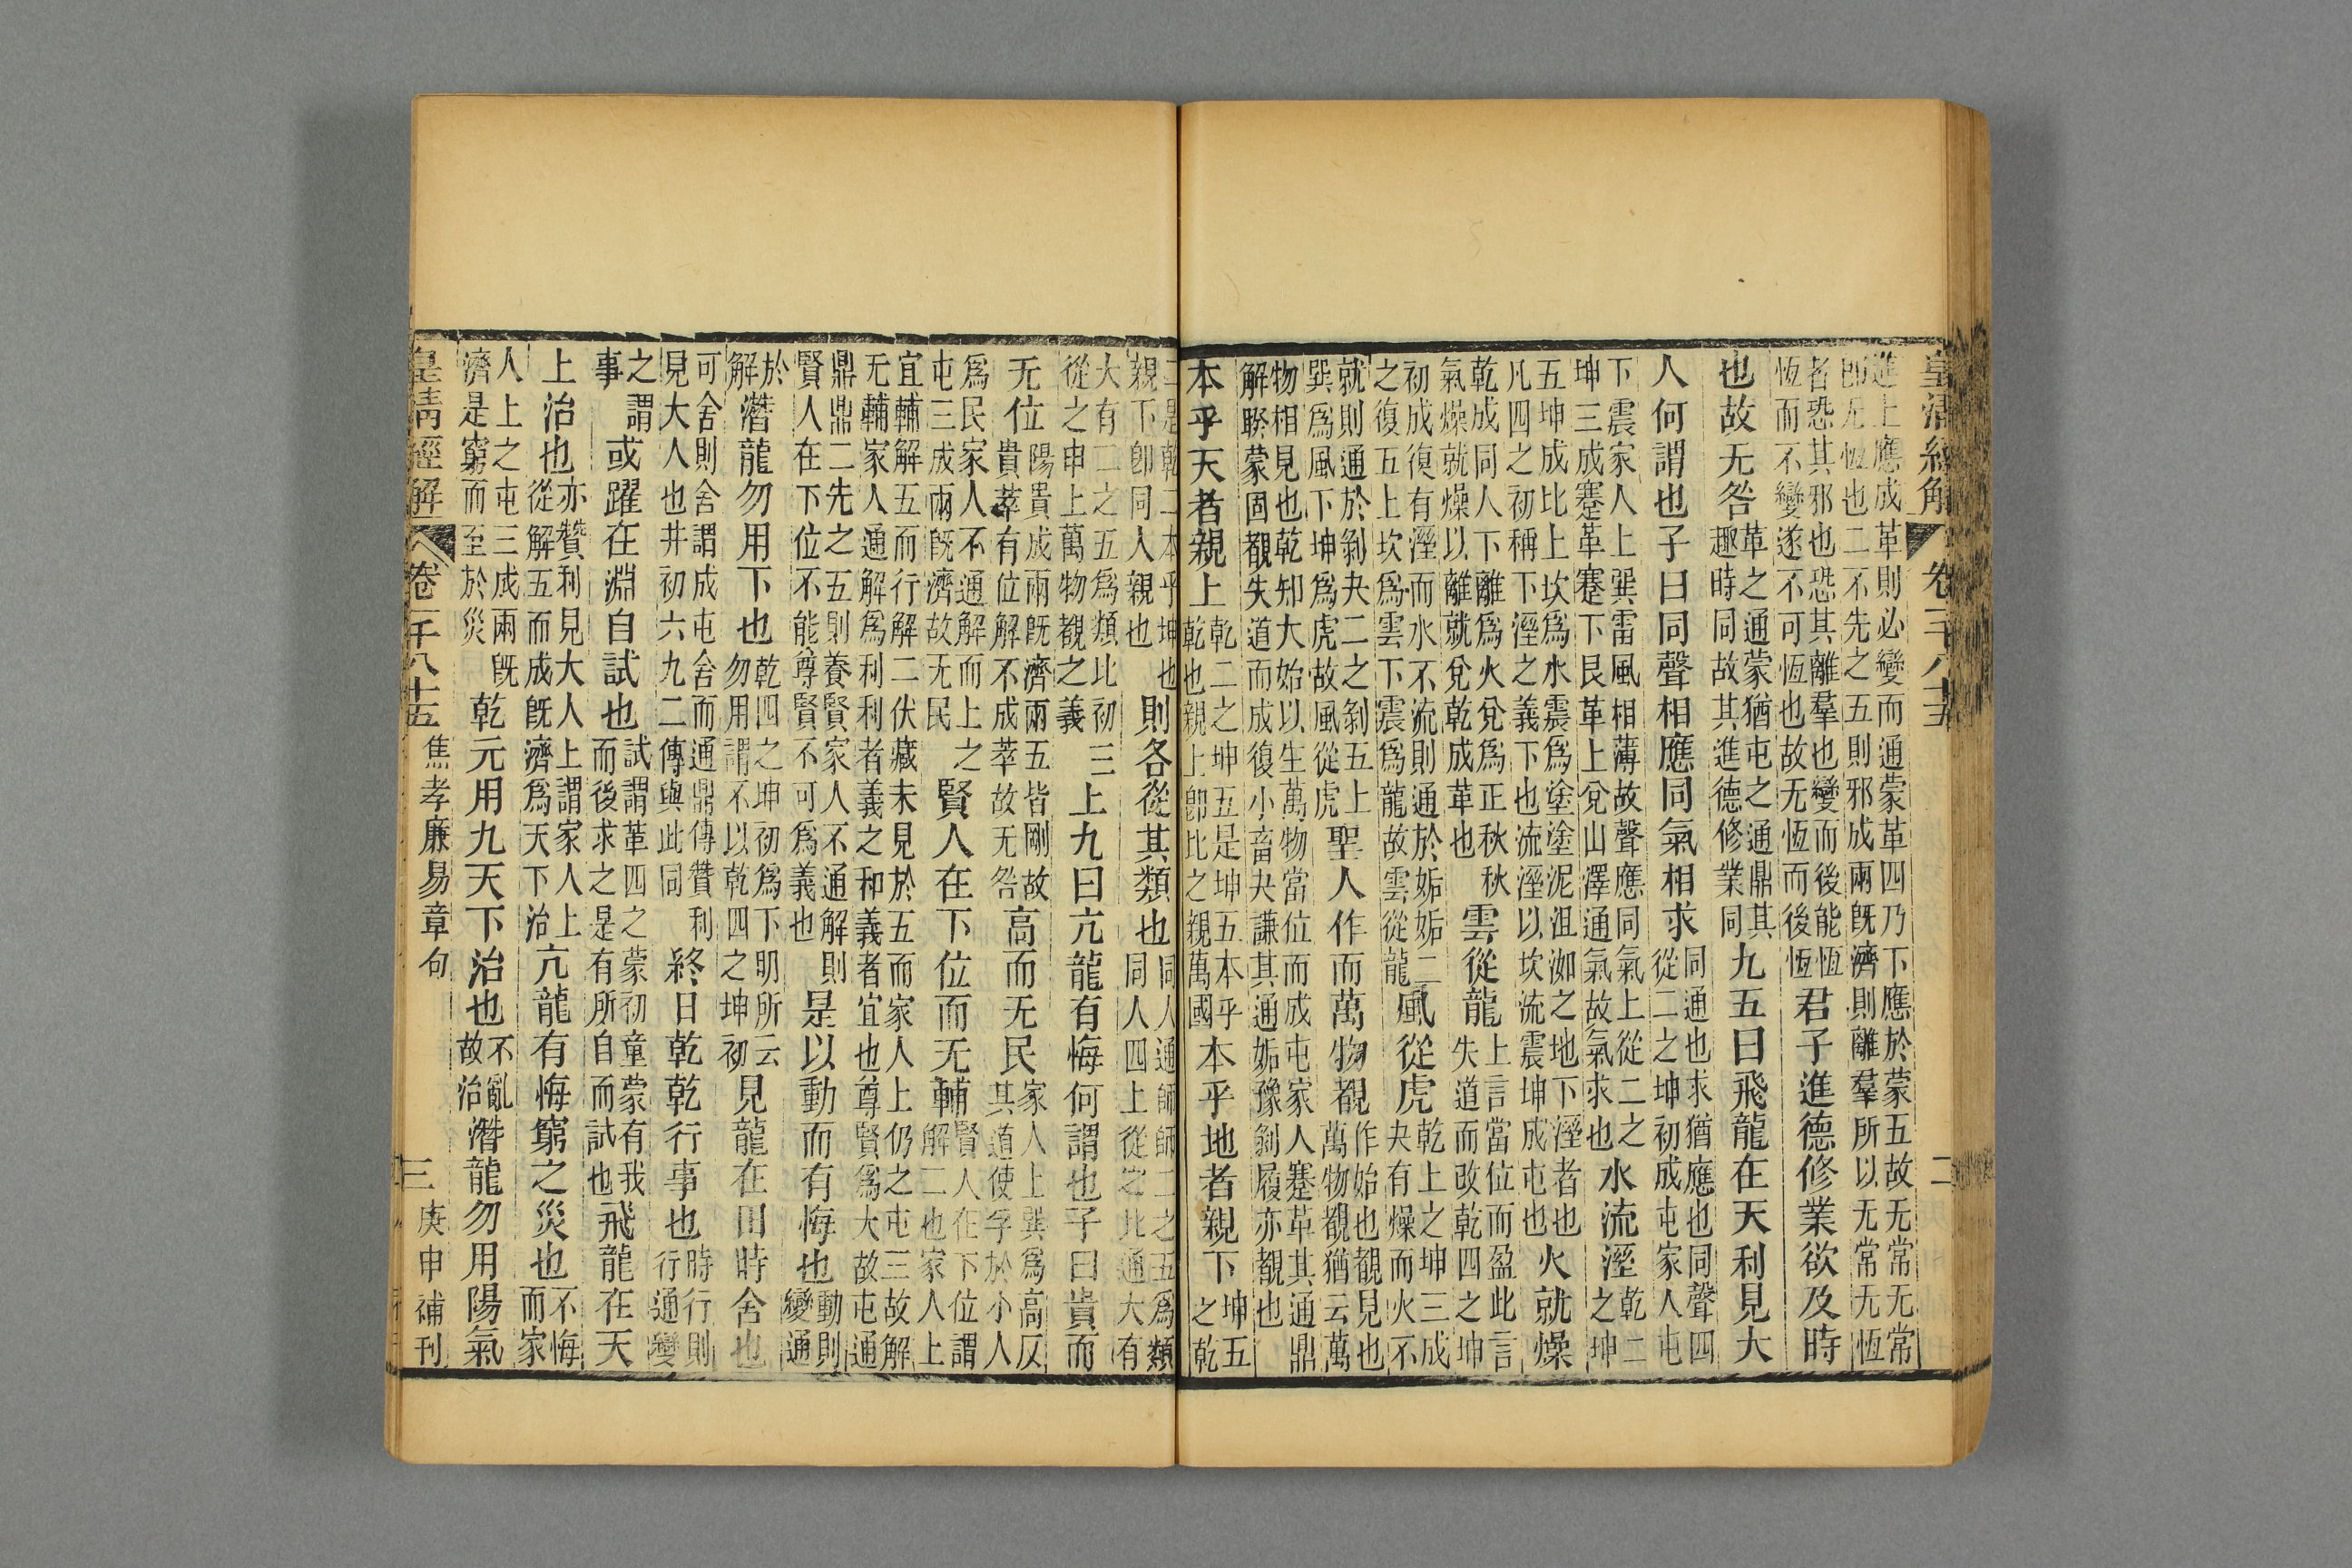 皇清經解 卷一千八十五 二
進上應成革則必變而通蒙革四乃下應於蒙五故无常无常
卽无恆也二不先之五則邪成兩旣濟則離羣所以无常无恆
者恐其邪也恐其離羣也變而後能恆
恆而不變遂不可恆也故无恆而後恆
君子進德修業欲及時
也故无咎
革之通蒙猶屯之通鼎其
趣時同故其進德修業同
九五曰飛龍在天利見大
人何謂也子曰同聲相應同氣相求
同通也求猶應也同聲四
從二之坤初成屯家人屯
下震家人上巽雷風相薄故聲應同氣上從二之
坤三成蹇革蹇下艮革上兌山澤通氣故氣求也
水流溼
乾二
之坤
五坤成比上坎爲水震爲塗塗泥沮洳之地下溼者也
凡四之初稱下溼之義下也流溼以坎流震坤成屯也
火就燥
乾成同人下離爲火兌爲正秋秋
氣燥就燥以離就兌乾成革也
雲從龍
上言當位而盈此言
失道而改乾四之坤
初成復有溼而水不流則通於姤姤二
之復五上坎爲雲下震爲龍故雲從龍
風從虎
乾上之坤三成
夬有燥而火不
就則通於剝夬二之剝五上
巽爲風下坤爲虎故風從虎
聖人作而萬物覩
作始也覩見也
萬物覩猶云萬
物相見也乾知大始以生萬物當位而成屯家人蹇革其通鼎
解睽蒙固覩失道而成復小畜夬謙其通姤豫剝履亦覩也
本乎天者親上
乾二之坤五是坤五本乎
乾也親上卽比之親萬國
本乎地者親下
坤五
之乾
二是乾二本乎坤也
親下卽同人親也
則各從其類也
同人通師師二之五爲類
同人四上從之比通大有
大有二之五爲類比初
從之申上萬物覩之義
三上九曰亢龍有悔何謂也子曰貴而
无位
陽貴成兩旣濟兩五皆剛故
貴萃有位解不成萃故无咎
高而无民
家人上巽爲高反
其道使孚於小人
爲民家人不通解而上之
屯三成兩旣濟故无民
賢人在下位而无輔
賢人在下位謂
解二也家人上
宜輔解五而行解二伏藏未見於五而家人上仍之屯三故解
无輔家人通解爲利利者義之和義者宜也尊賢爲大故屯通
鼎鼎二先之五則養賢家人不通解則
賢人在下位不能尊賢不可爲義也
是以動而有悔也
動則
變通
於
解
潛龍勿用下也
乾四之坤初爲下明所云
勿用謂不以乾四之坤初
見龍在田時舍也
可舍則舍謂成屯舍而通鼎傳贊利
見大人也井初六九二傳與此同
終日乾乾行事也
時行則
行通變
之謂
事
或躍在淵自試也
試謂革四之蒙初童蒙有我
而後求之是有所自而試也
飛龍在天
上治也
亦贊利見大人上謂家人上
從解五而成旣濟爲天下治
亢龍有悔窮之災也
不悔
而家
人上之屯三成兩旣
濟是窮而至於災
乾元用九天下治也
不亂
故治
潛龍勿用陽氣
皇清經解 卷一千八十五 焦孝廉易章句 三 庚申補刊